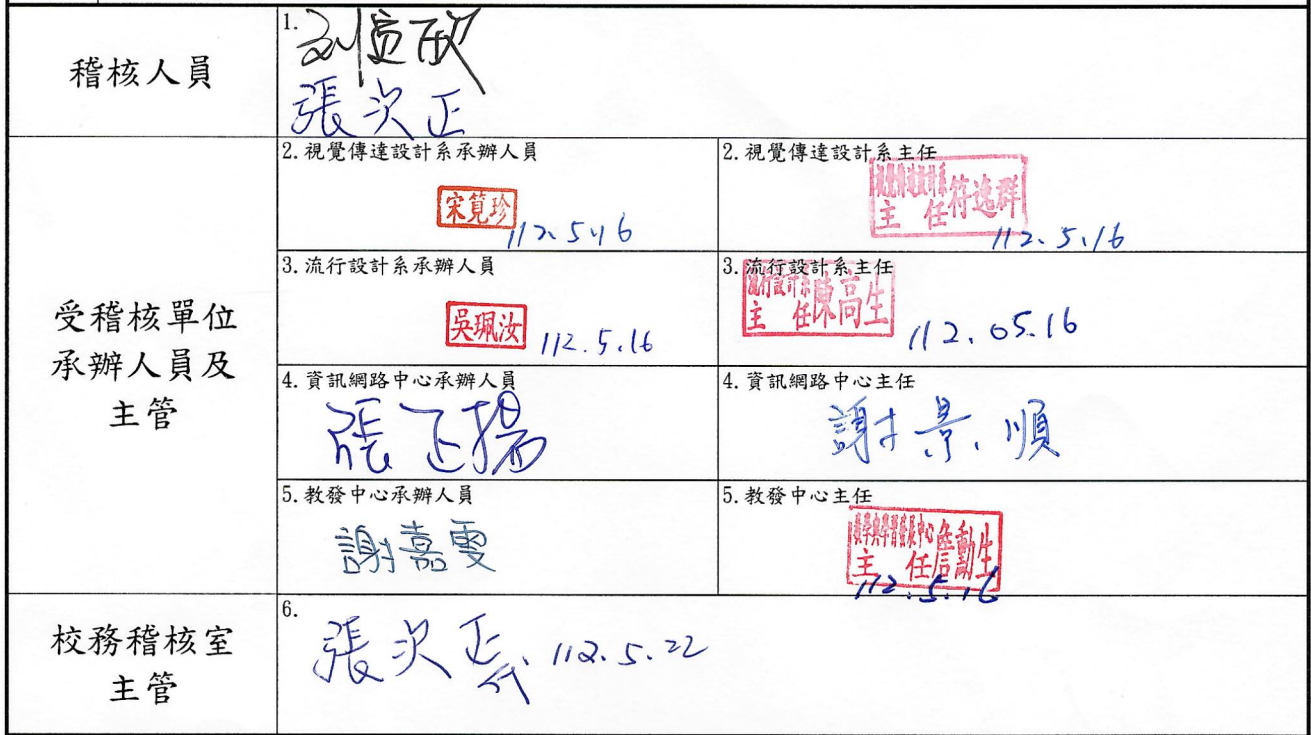 稽核人員
1.
張次正
受稽核單位
承辦人員及
主管
2.視覺傳達設計系承辦人員
宋筧珍
112.5.16
2.視覺傳達設計系主任
主 任符逸群
112.5.16
3.流行設計系承辦人員
吳珮汝
112.5.16
3.流行設計系主任
流行設計系
主 任陳高生
112.05.16
4.資訊網路中心承辦人員
張正揚
4.資訊網路中心主任
謝景順
5.教發中心承辦人員
謝嘉雯
5.教發中心主任
教學與學習發展中心
主 任詹勳生
112.5.16
校務稽核室
主管
6.
張次正代 112.5.22